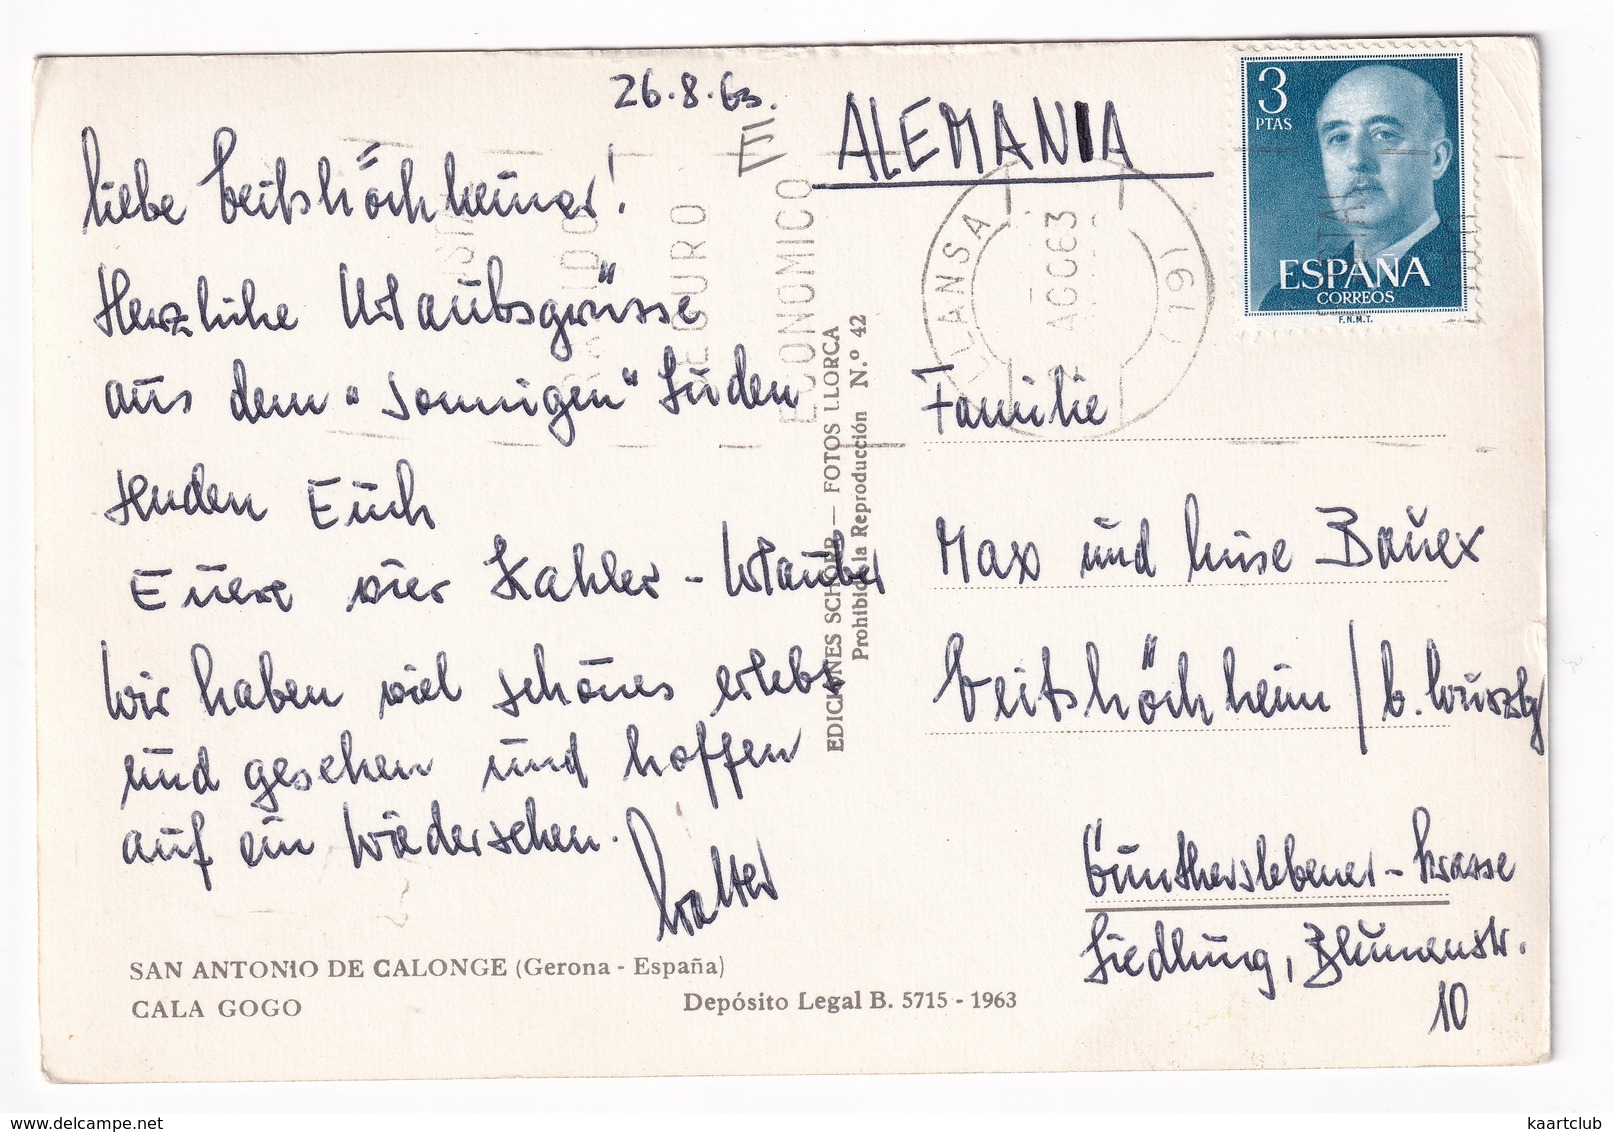 26.8.63.
Liebe Veitshöchheimer!
Herzliche Urlaubsgrüsse
aus dem "sonnigen" Süden
senden Euch
Euere vier Kahler-Urlauber
Wir haben viel schönes erlebt
und gesehen und hoffen
auf ein Wiedersehen.
Walter
SAN ANTONIO DE CALONGE (Gerona - España)
CALA GOGO
Depósito Legal B. 5715 - 1963
EDICIONES SCHORR — FOTOS LLORCA
Prohibida la Reproducción N.º 42
E
ALEMANIA
3
PTAS
ESPAÑA
CORREOS
F.N.M.T.
SEGURO
ECONOMICO
AGO63
Familie
Max und Luise Bauer
Veitshöchheim / b. Würzbg
Günthersleb​ener-Strasse
Siedlung, Blumenstr.
10
www.delcampe.net
kaartclub